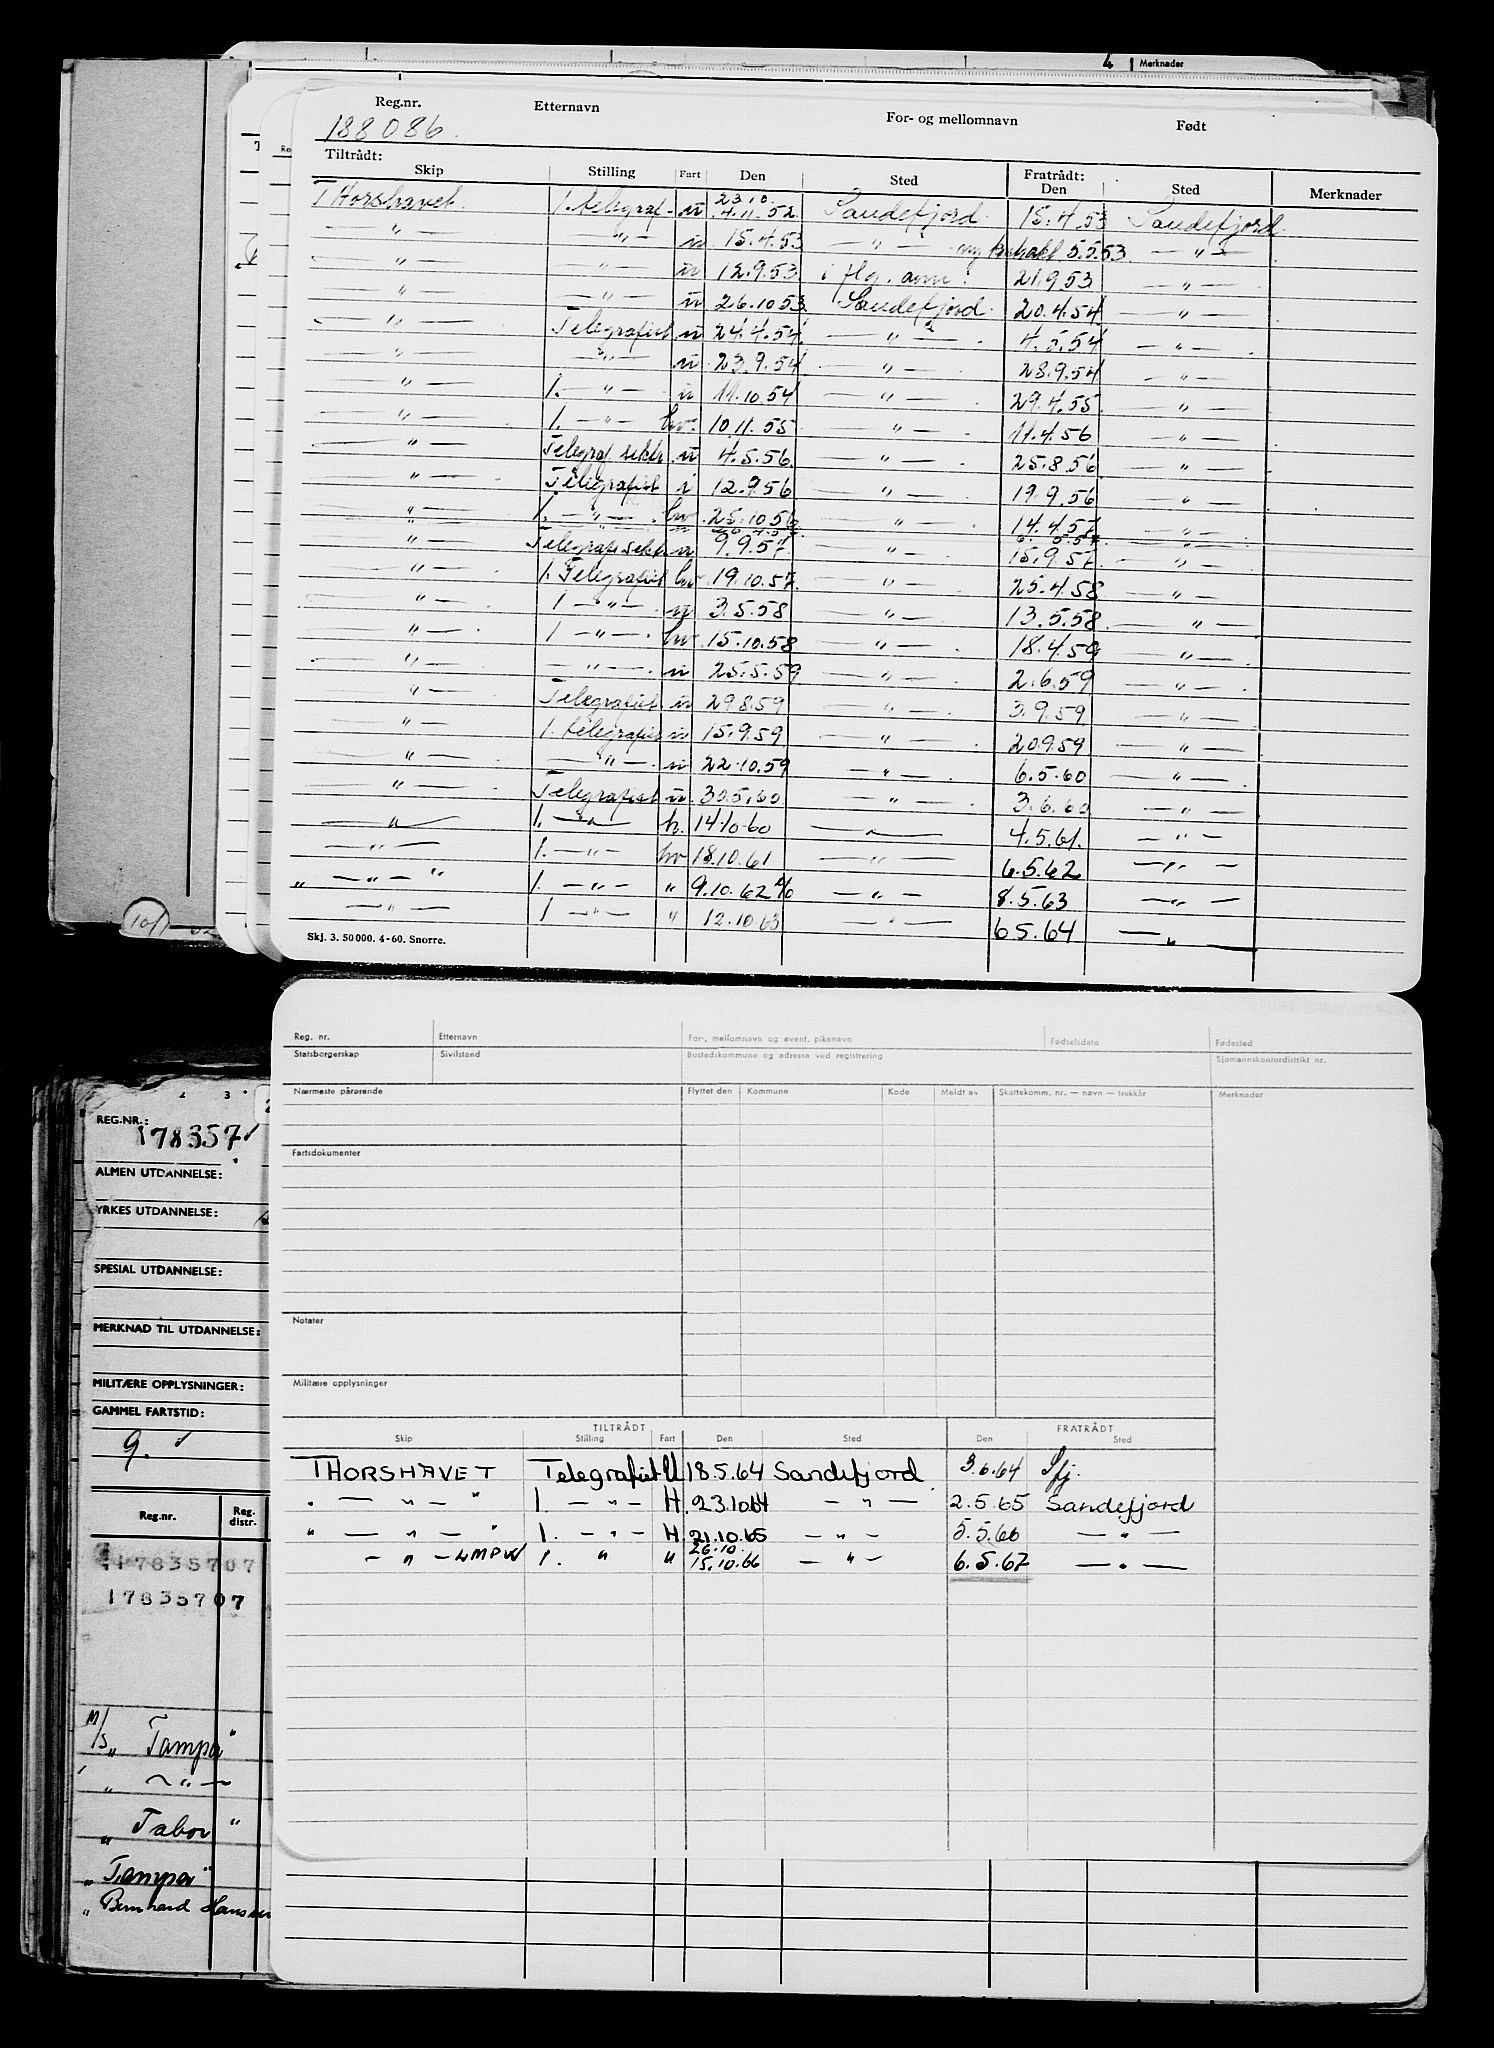 4 Merknader
Reg.nr. Etternavn For- og mellomnavn Født
188086.
Tiltrådt: Fratrådt:
Skip Stilling Fart Den Sted Den Sted Merknader
Thorshavet. 1. telegraf. u 23.10 4.11.52. Sandefjord. 15.4.53 Sandefjord.
— " — — " — u 15.4.53 — " — ny kontrakt 5.5.53 — " —
— " — — " — u 12.9.53. i flg. ann. 21.9.53 — " —
— " — — " — u 26.10.53. Sandefjord. 20.4.54 — " —
— " — Telegrafist u 24.4.54. — " — . 4.5.54 — " —
— " — — " — u 23.9.54 — " — . 28.9.54 — " —
— " — 1. — " — u 11.10.54 — " — . 29.4.55 — " —
— " — 1. — " — hv. 10.11.55 — " — . 11.4.56 — " —
— " — Telegraf. sekr. u 4.5.56. — " — . 25.8.56 — " —
— " — Telegrafist i 12.9.56 — " — . 19.9.56 — " —
— " — 1. — " — . hv. 25.10.56 — " — . 14.4.57 — " —
— " — Telegrafisekr. u 9.9.57 — " — . 15.9.57 — " —
— " — 1. Telegrafist hv. 19.10.57. — " — 25.4.58 — " —
— " — . 1 — " — . u 3.5.58 — " — . 13.5.58 — " —
— " — . 1 — " — . hv. 15.10.58 — " — . 18.4.59 — " —
— " — — " — . u 25.5.59 — " — . 2.6.59 — " —
— " — . Telegrafist u 29.8.59 — " — . 3.9.59 — " —
— " — 1. telegrafist u 15.9.59 — " — . 20.9.59 — " —
— " — — " — . u 22.10.59 — " — . 6.5.60 — " —
— " — Telegrafist u. 30.5.60 — " — . 3.6.60 — " —
— " — 1. — " — h. 14.10.60 — " — 4.5.61. — " —
— " — 1. — " — hv 18.10.61 — " — 6.5.62 — " —
" — " — " 1. — " — " 9.10.62 — " — 8.5.63 — " —
— " — 1 — " — " 12.10.63 — " — 6.5.64 — " —
Skj. 3. 50 000. 4-60. Snorre.
Reg. nr. Etternavn For-, mellomnavn og event. pikenavn Fødselsdato Fødested
Statsborgerskap Sivilstand Bostedskommune og adresse ved registrering Sjømannskontordistrikt nr.
Nærmeste pårørende Flyttet den Kommune Kode Meldt av Skattekomm. nr. — navn — trekkår Merknader
Fartsdokumenter
Notater
Militære opplysninger
TILTRÅDT FRATRÅDT
Skip Stilling Fart Den Sted Den Sted
THORSHAVET Telegrafist U 18.5.64 Sandefjord 3.6.64 Sfj.
" — " — " 1. — " — H. 23.10.64 — " — 2.5.65 Sandefjord
" — " — " 1. — " — H. 21.10.65 — " — 5.5.66 — " —
— " — LMPW 1. " " 26.10. 15.10.66 — " — 6.5.67 — " —
2 3
REG.NR.:
178357
ALMEN UTDANNELSE:
YRKES UTDANNELSE:
SPESIAL UTDANNELSE:
MERKNAD TIL UTDANNELSE:
MILITÆRE OPPLYSNINGER:
GAMMEL FARTSTID:
9.
Reg.nr. Reg. distr.
17835707
17835707
M/S " Tampa "
" — " —
" Tabor "
" Tampa "
" Bernhard Hanssen